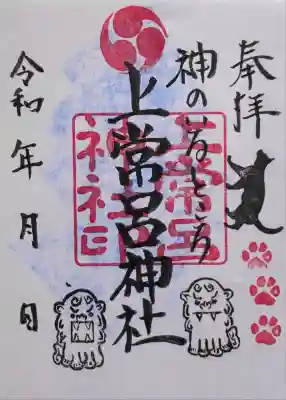 奉拝
神の ところ
上常呂神社
上常呂
神社印
令和 年 月 日